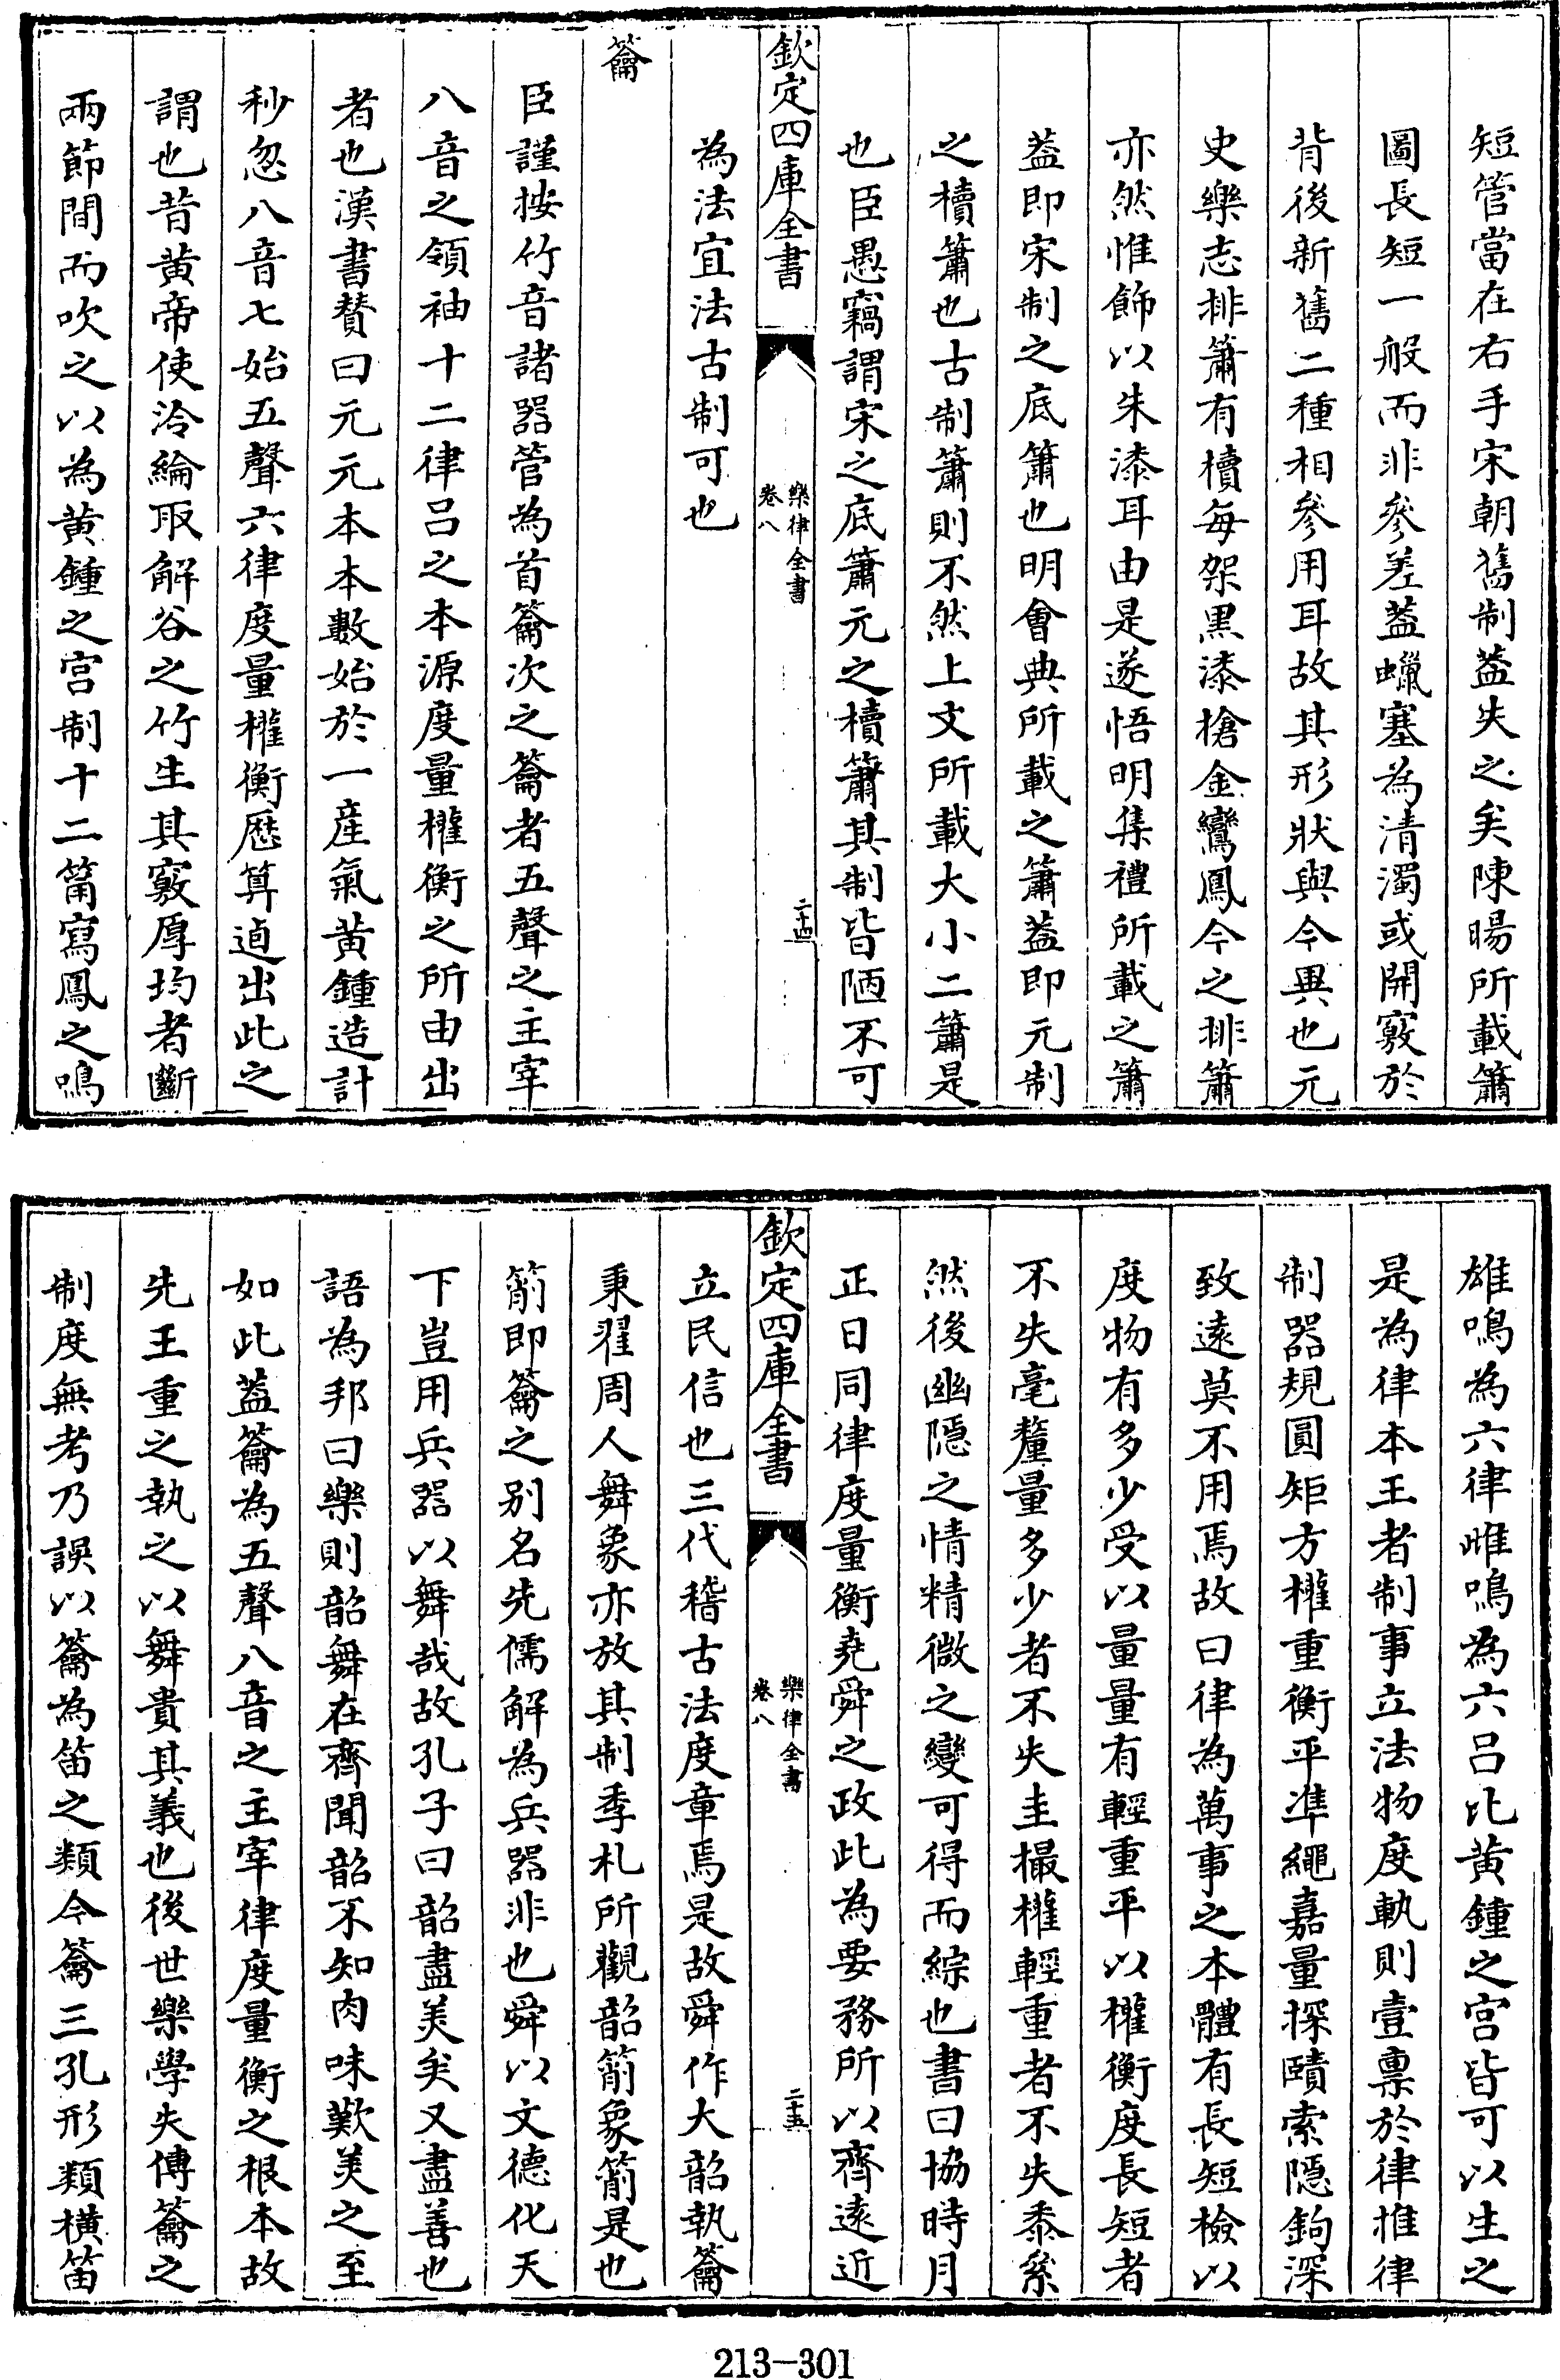 短管當在右手宋朝舊制蓋失之矣陳暘所載簫
圖長短一般而非參差蓋蠟塞為清濁或開竅於
背後新舊二種相參用耳故其形狀與今異也元
史樂志排簫有櫝每架黑漆槍金鸞鳳今之排簫
亦然惟飾以朱漆耳由是遂悟明集禮所載之簫
蓋即宋制之底簫也明會典所載之簫蓋即元制
之櫝簫也古制簫則不然上文所載大小二簫是
也臣愚竊謂宋之底簫元之櫝簫其制皆陋不可
欽定四庫全書
樂律全書
卷八
二十四
為法宜法古制可也
籥
臣謹按竹音諸器管為首籥次之籥者五聲之主宰
八音之領袖十二律呂之本源度量權衡之所由出
者也漢書贊曰元元本本數始於一産氣黃鍾造計
秒忽八音七始五聲六律度量權衡歴算逌出此之
謂也昔黃帝使泠綸取解谷之竹生其竅厚均者斷
兩節間而吹之以為黃鍾之宮制十二筩寫鳳之鳴
雄鳴為六律雌鳴為六呂比黃鍾之宮皆可以生之
是為律本王者制事立法物度軌則壹禀於律推律
制器規圓矩方權重衡平準繩嘉量探賾索隱鉤深
致遠莫不用焉故曰律為萬事之本體有長短檢以
度物有多少受以量量有輕重平以權衡度長短者
不失毫釐量多少者不失圭撮權輕重者不失黍絫
然後幽隱之情精微之變可得而綜也書曰協時月
正日同律度量衡堯舜之政此為要務所以齊遠近
欽定四庫全書
樂律全書
卷八
二十五
立民信也三代稽古法度章焉是故舜作大韶執籥
秉翟周人舞象亦放其制季札所觀韶箾象箾是也
箾即籥之別名先儒解為兵器非也舜以文德化天
下豈用兵器以舞哉故孔子曰韶盡美矣又盡善也
語為邦曰樂則韶舞在齊聞韶不知肉味歎美之至
如此蓋籥為五聲八音之主宰律度量衡之根本故
先王重之執之以舞貴其義也後世樂學失傳籥之
制度無考乃誤以籥為笛之類今籥三孔形類橫笛
213-301